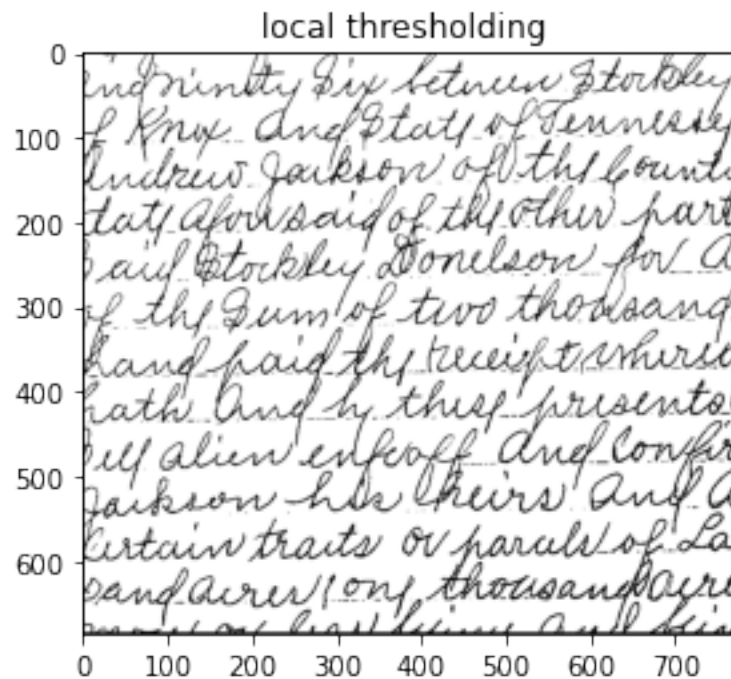 local thresholding
0
100
200
300
400
500
600
indninety Six between Stockley
of Knox And State of Tennessey
Andrew Jackson of the Count
tate aforesaid of the other part
aid Stockley Donelson for a
of the Sum of two thousand
hand paid the receipt where
hath And by these presents
ell alien enfeoff And Confir
Jackson his heirs And A
Certain traits or parcels of La
sand acres, one thousand acre
0 100 200 300 400 500 600 700